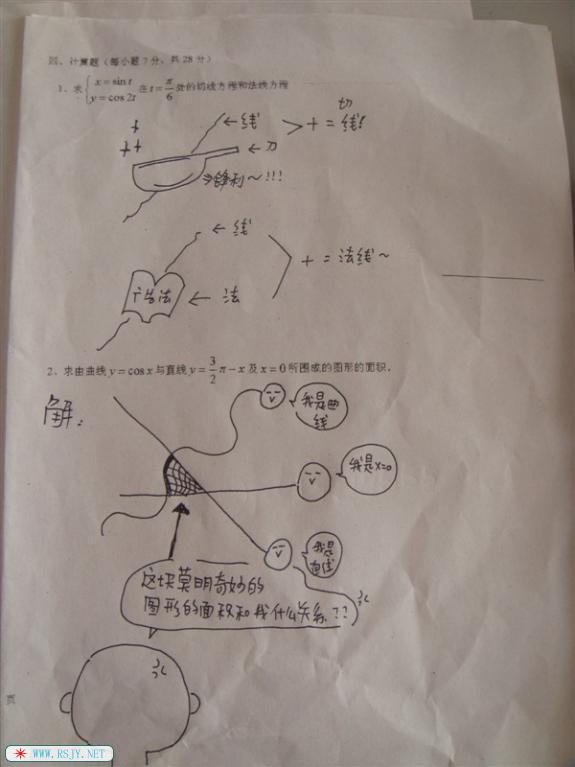 四、计算题（每小题7分，共28分）
1、求{x=sin t y=cos 2t 在t=π/6处的切线方程和法线方程
←线
切
+=线!
←刀
锋利～!!!
←线
+=法线～
广告法
←法
2、求由曲线y=cos x与直线y=3/2π-x及x=0所围成的图形的面积。
解:
我是曲
线
我是x=0
我是
直线
这块莫明奇妙的
图形的面积和我什么关系??
页
WWW.RSJY.NET